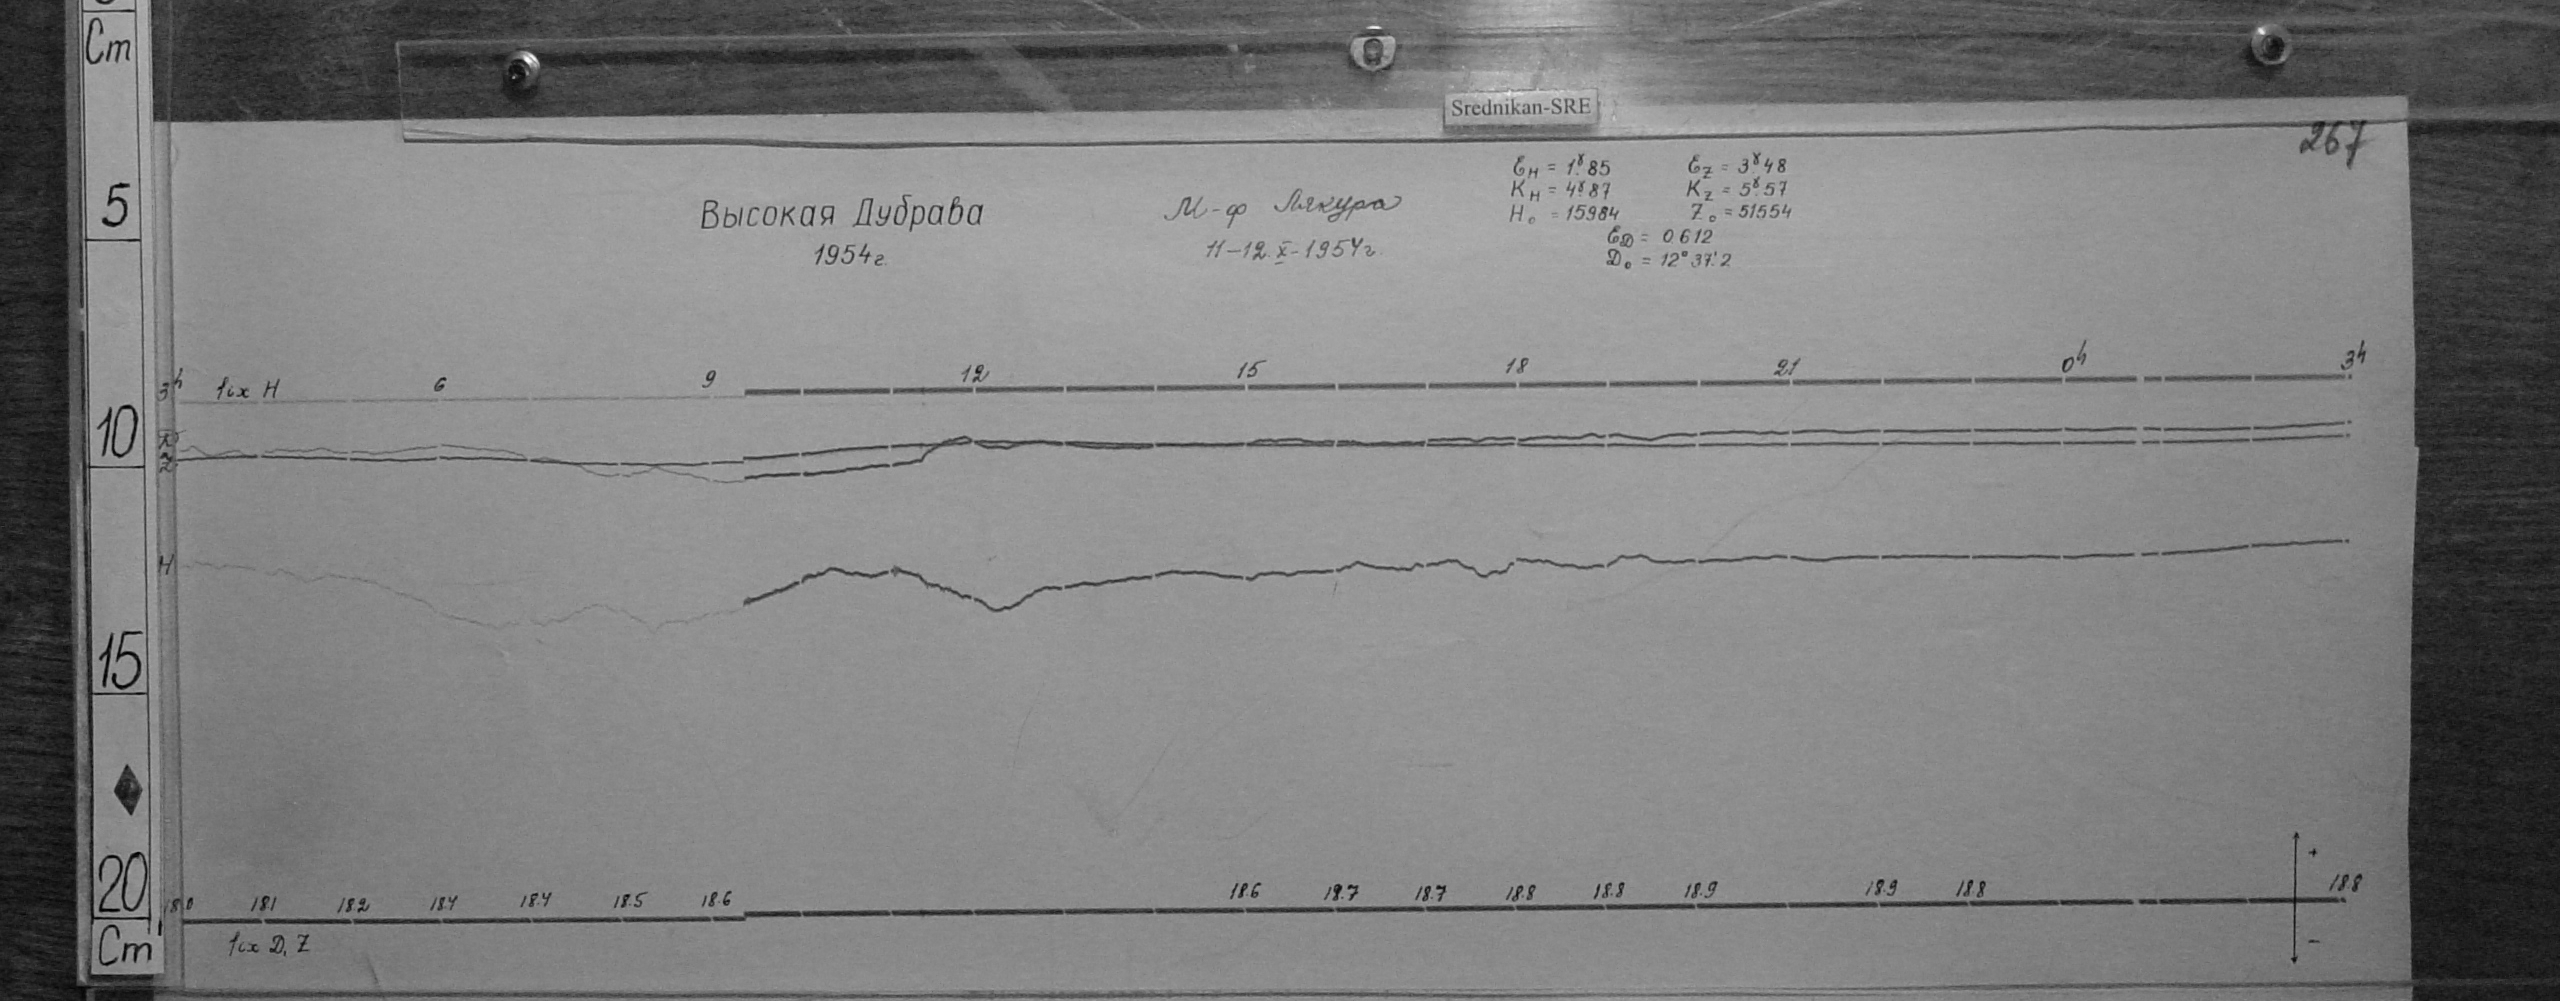 Cm
5
10
15
20
Cm
Srednikan-SRE
267
Высокая Дубрава
1954г.
М-ф Лякура
11-12.X-1954г.
Ɛн = 1.ˠ85
Kн = 4.ˠ87
H₀ = 15984
Ɛz = 3.ˠ48
Kz = 5.ˠ57
Z₀ = 51554
ƐD = 0.612
D₀ = 12°37.'2
3ʰ 6 9 12 15 18 21 0ʰ 3ʰ
H
Z
H
18.0 18.1 18.2 18.4 18.4 18.5 18.6 18.6 18.7 18.7 18.8 18.8 18.9 18.9 18.8 18.8
D, Z
+
−